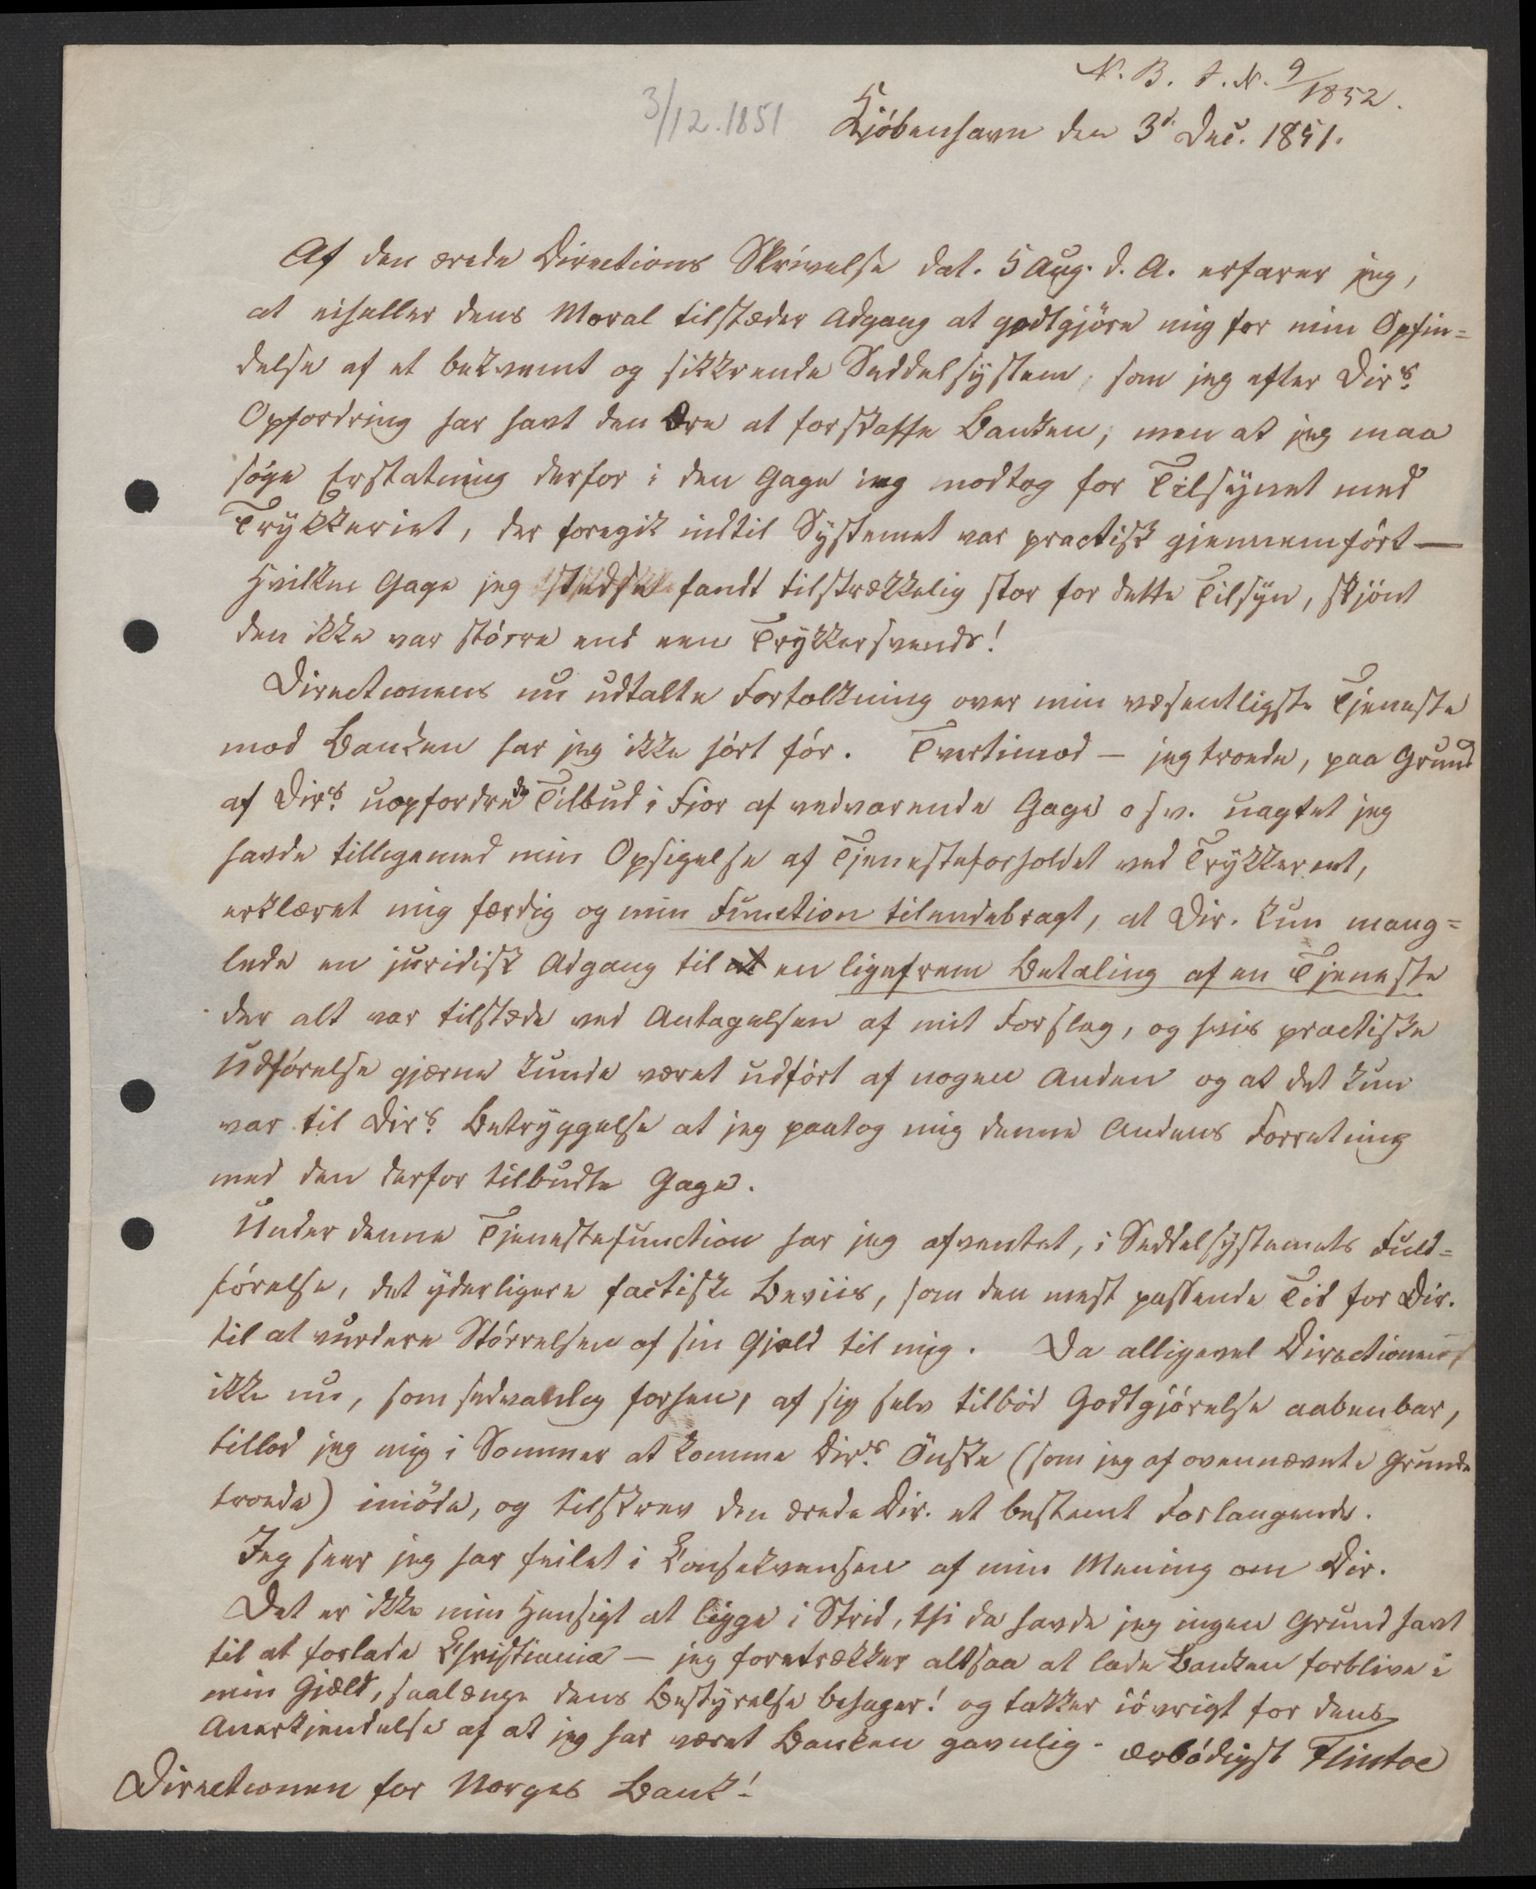 N. B. J. N. 9/1852.
3/12.1851
Kjöbenhavn den 3d Dec. 1851.
Af den ærede Directions Skrivelse dat. 5 Aug. d. A. erfarer jeg,
at eiheller dens Moral tilstæder Adgang at godtgjöre mig for min Opfin=
delse af et bekvemt og sikkrende Seddelsystem, som jeg efter Dirs.
Opfordring har havt den Ære at forskaffe Banken, men at jeg maa
söge Erstatning derfor i den Gage jeg modtog for Tilsynet med
Trykkeriet, der foregik indtil Systemet var practisk gjennemfört —
hvilken Gage jeg fandt tilstrækkelig stor for dette Tilsyn, skjönt
den ikke var större end een Trykkersvends!
Directionens nu udtalte Fortolkning over min væsentligste Tjeneste
mod Banken har jeg ikke hört för. Tvertimod — jeg troede, paa Grund
af Dirs. uopfordrede Tilbud i Fjor af vedvarende Gage o s v. uagtet jeg
havde tilligemed min Opsigelse af Tjenesteforholdet ved Trykkeriet,
erklæret mig færdig og min Function tilendebragt, at Dir. kun mang=
lede en juridisk Adgang til en ligefrem Betaling af en Tjeneste
der alt var tilstæde ved Antagelsen af mit Forslag, og hvis practiske
Udförelse gjærne kunde været udfört af nogen Anden og at det kun
var til Dirs. Betryggelse at jeg paatog mig denne Andens Forretning
med den derfor tilbudte Gage.
Under denne Tjenestefunction har jeg afventet, i Seddelsystemets Fuld=
förelse, det yderligere factiske Beviis, som den mest passende Tid for Dir.
til at vurdere Störrelsen af sin Gjæld til mig. Da alligevel Directionen
ikke nu, som sedvanlig forhen, af sig selv tilböd Godtgjörelse aabenbar,
tillod jeg mig i Sommer at komme Dirs. Önske (som jeg af ovennævnte Grunde
troede) imöde, og tilskrev den ærede Dir. et bestemt Forlangende.
Jeg seer jeg har feilet i Konsekvensen af min Mening om Dir.
Det er ikke min Hensigt at ligge i Strid, thi da havde jeg ingen Grund havt
til at forlade Christiania — jeg foretrækker altsaa at lade Banken forblive i
min Gjæld, saalænge dens Bestyrelse behager! og takker iövrigt for dens
Anerkjendelse af at jeg har været Banken gavnlig. Ærbödigst Flintoe
Directionen for Norges Bank!